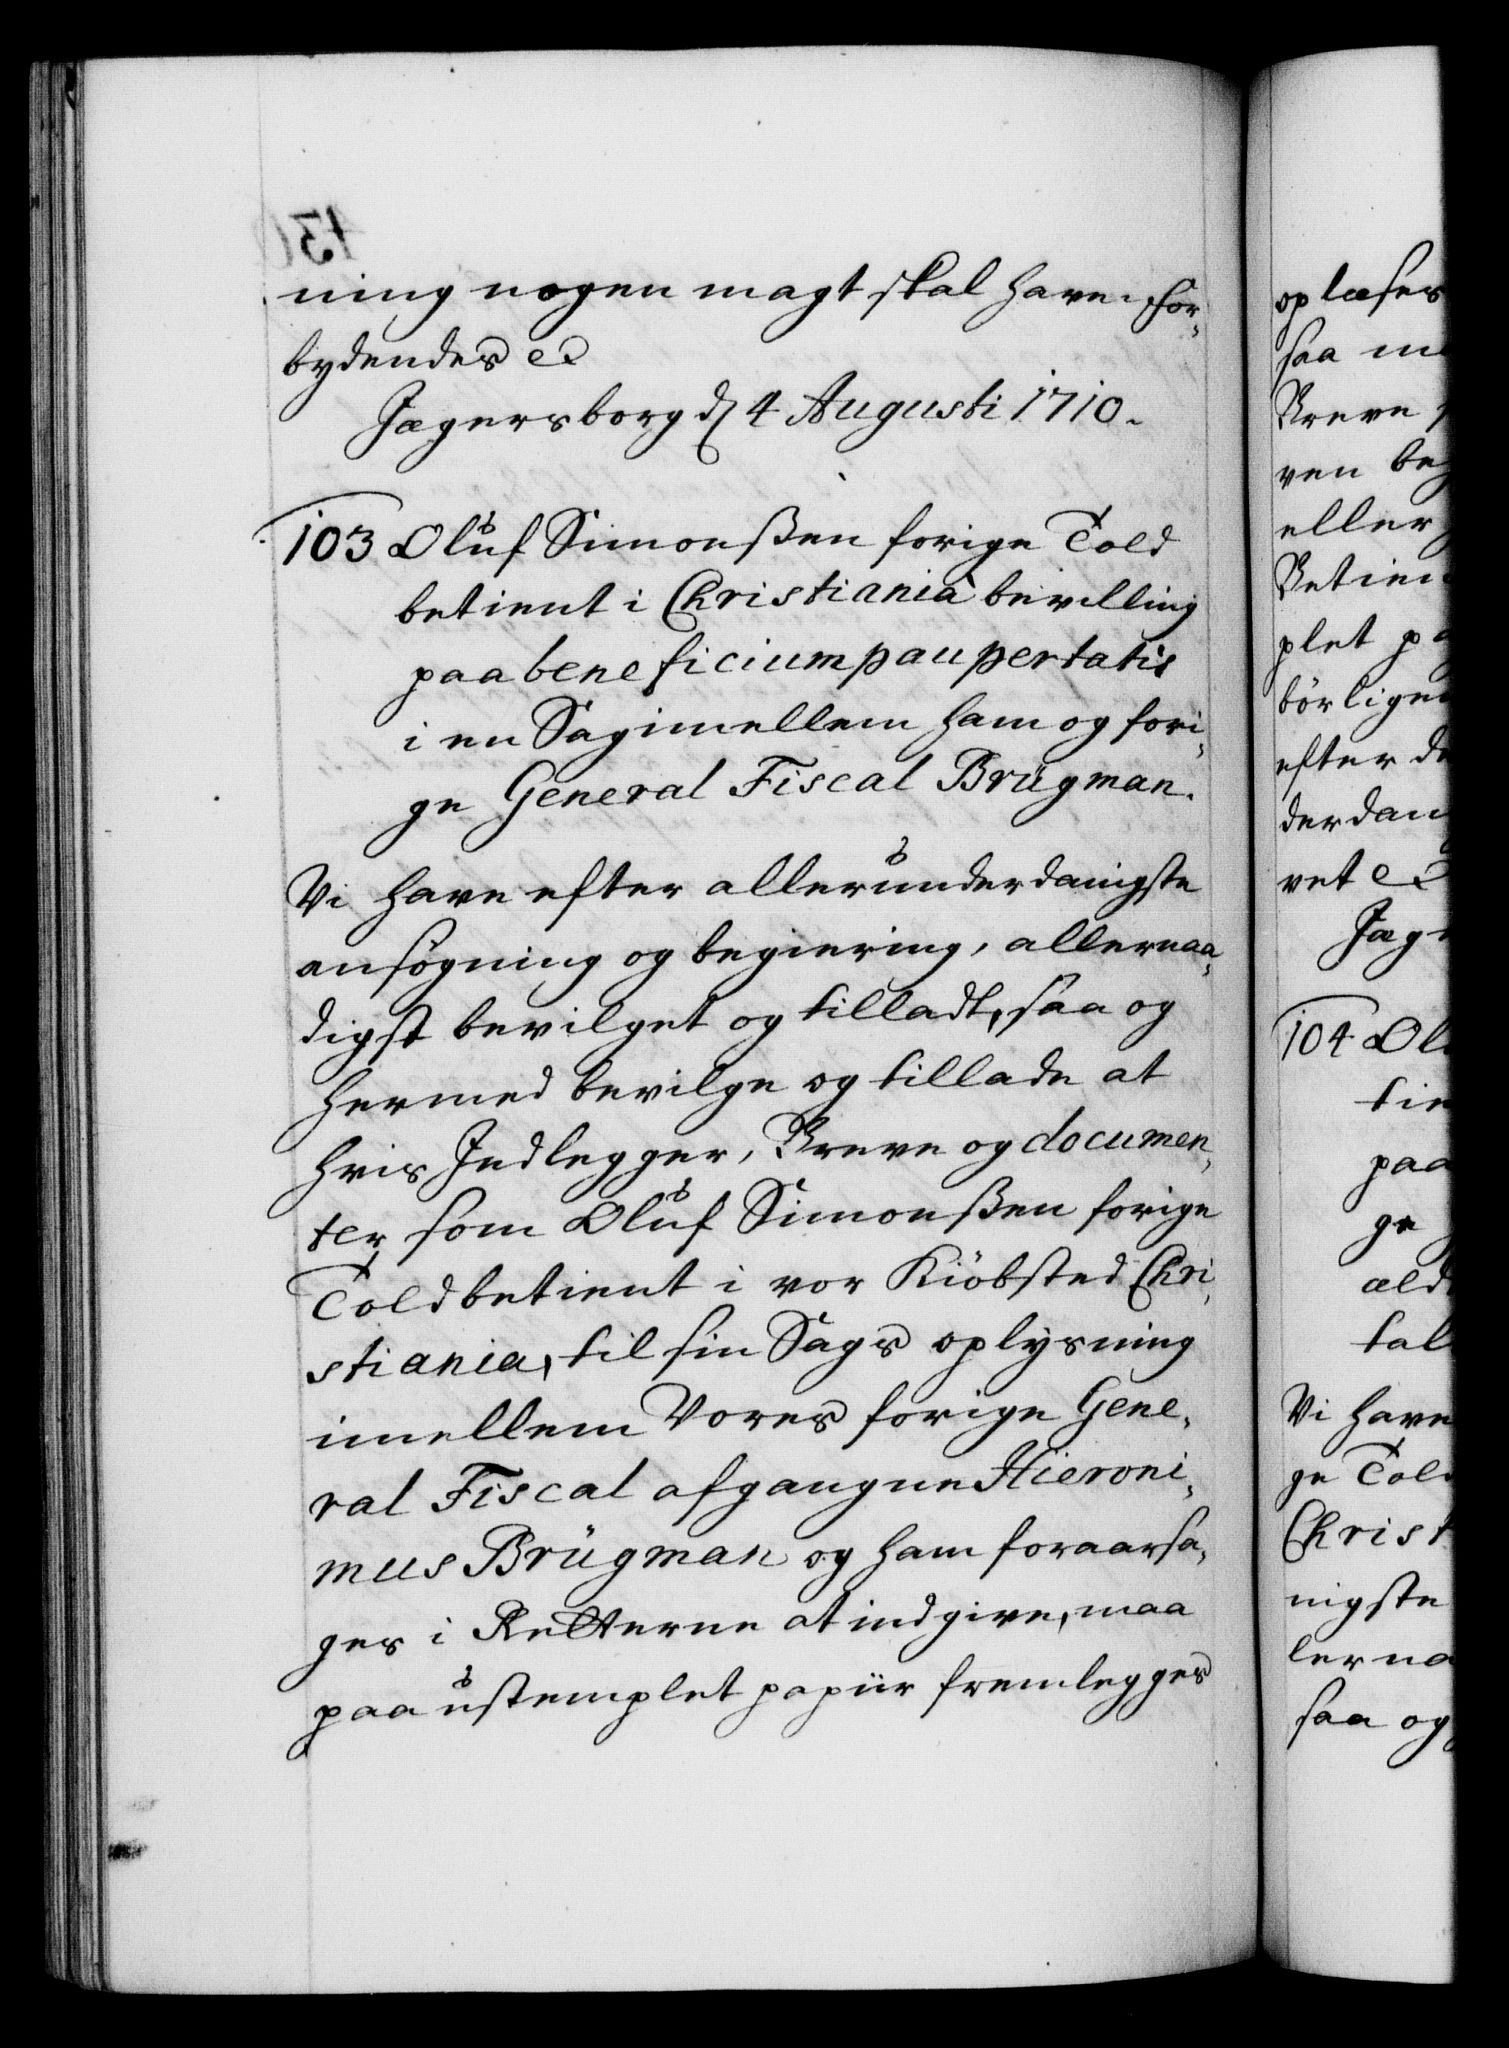 ning nogen magt skal have. for-
bydendes etc
Jægersborg d 4 Augusti 1710.
103 Oluf Simonßen forige Told
betient i Christiania bevilling
paa beneficium paupertatis
i en Sag imellem ham og fori-
ge General Fiscal Brügman.
Vi have efter allerunderdanigste
ansøgning og begiering, allernaa-
digst bevilget og tilladt, saa og
hermed bevilge og tillade at
hvis Indlegger, Breve og documen-
ter som Oluf Simonßen forige
Toldbetient i vor Kiöbsted Chri-
stiania, til sin Sags oplysning
imellem Vores forige Gene-
ral Fiscal afgangne Hieroni-
mus Brügman og ham foraarsa-
ges i Retterne at indgive, maa
paa ustemplet papiir fremlegges
oplæses
saa
Breve
ven
eller
plet
börlige
efter
vet etc
104
paa
ge
Vi have
ge Tol
Christ
nigste
ler na
saa og